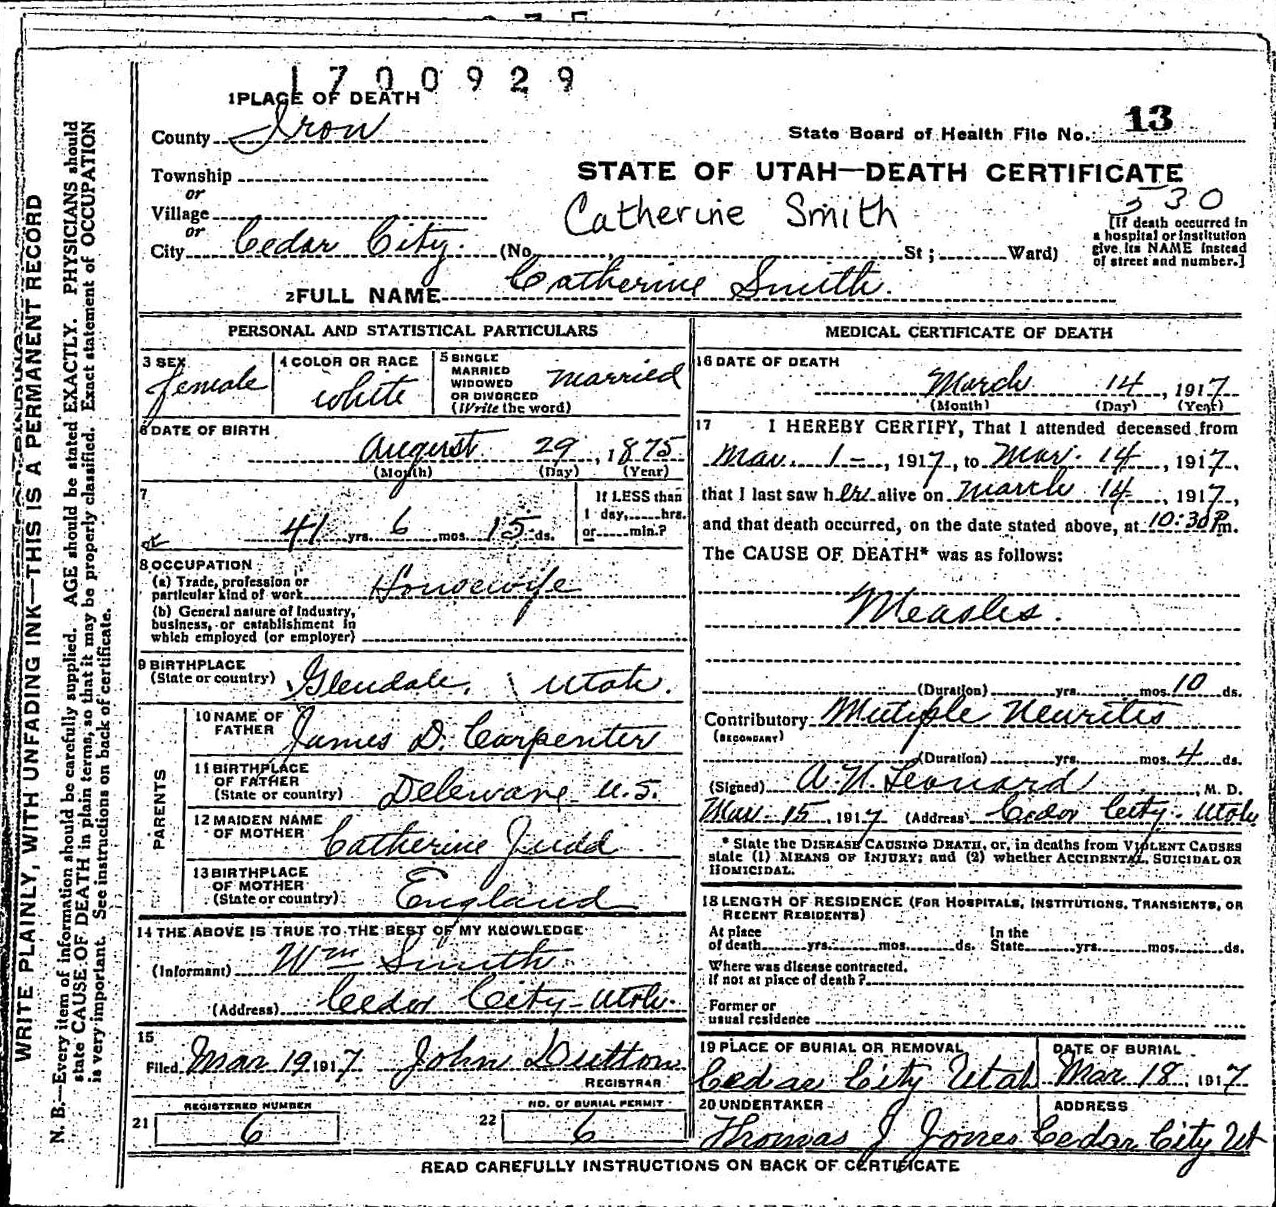 1700929
1 PLACE OF DEATH
County Iron
State Board of Health File No. 13
Township
or
Village
or
City Cedar City. (No. St; Ward)
STATE OF UTAH—DEATH CERTIFICATE
530
Catherine Smith
[If death occurred in
a hospital or institution
give its NAME instead
of street and number.]
2 FULL NAME Catherine Smith.
PERSONAL AND STATISTICAL PARTICULARS
3 SEX female
4 COLOR OR RACE white
5 SINGLE
MARRIED
WIDOWED
OR DIVORCED
(Write the word) married
6 DATE OF BIRTH
August 29, 1875
(Month) (Day) (Year)
7
41 yrs. 6 mos. 15 ds.
If LESS than
1 day, hrs.
or min.?
8 OCCUPATION
(a) Trade, profession or
particular kind of work Housewife
(b) General nature of Industry,
business, or establishment in
which employed (or employer)
9 BIRTHPLACE
(State or country) Glendale, Utah.
PARENTS
10 NAME OF
FATHER James D. Carpenter
11 BIRTHPLACE
OF FATHER
(State or country) Deleware U.S.
12 MAIDEN NAME
OF MOTHER Catherine Judd.
13 BIRTHPLACE
OF MOTHER
(State or country) England
14 THE ABOVE IS TRUE TO THE BEST OF MY KNOWLEDGE
(Informant) Wm Smith
(Address) Cedar City - Utah.
15
Filed Mar 19 1917 John Dutton
REGISTRAR
21 REGISTERED NUMBER 6
22 NO. OF BURIAL PERMIT 6
MEDICAL CERTIFICATE OF DEATH
16 DATE OF DEATH
March 14, 1917
(Month) (Day) (Year)
17 I HEREBY CERTIFY, That I attended deceased from
Mar. 1-, 1917, to Mar. 14, 1917,
that I last saw her alive on March 14, 1917,
and that death occurred, on the date stated above, at 10:30 P.m.
The CAUSE OF DEATH* was as follows:
Measles.
(Duration) yrs. mos. 10 ds.
Contributory Mutiple Neuritis
(SECONDARY)
(Duration) yrs. mos. 4 ds.
(Signed) A. N. Leonard, M. D.
Mar-15, 1917 (Address) Cedar City - Utah
* State the DISEASE CAUSING DEATH, or, in deaths from VIOLENT CAUSES
state (1) MEANS OF INJURY; and (2) whether ACCIDENTAL, SUICIDAL OR
HOMICIDAL.
18 LENGTH OF RESIDENCE (FOR HOSPITALS, INSTITUTIONS, TRANSIENTS, OR
RECENT RESIDENTS)
At place
of death yrs. mos. ds.
In the
State yrs. mos. ds.
Where was disease contracted,
if not at place of death?
Former or
usual residence
19 PLACE OF BURIAL OR REMOVAL
Cedar City Utah
DATE OF BURIAL
Mar 18, 1917
20 UNDERTAKER
Thomas J Jones
ADDRESS
Cedar City Ut
READ CAREFULLY INSTRUCTIONS ON BACK OF CERTIFICATE
WRITE PLAINLY, WITH UNFADING INK—THIS IS A PERMANENT RECORD
N. B.—Every item of information should be carefully supplied. AGE should be stated EXACTLY. PHYSICIANS should
state CAUSE OF DEATH in plain terms, so that it may be properly classified. Exact statement of OCCUPATION
is very important. See instructions on back of certificate.